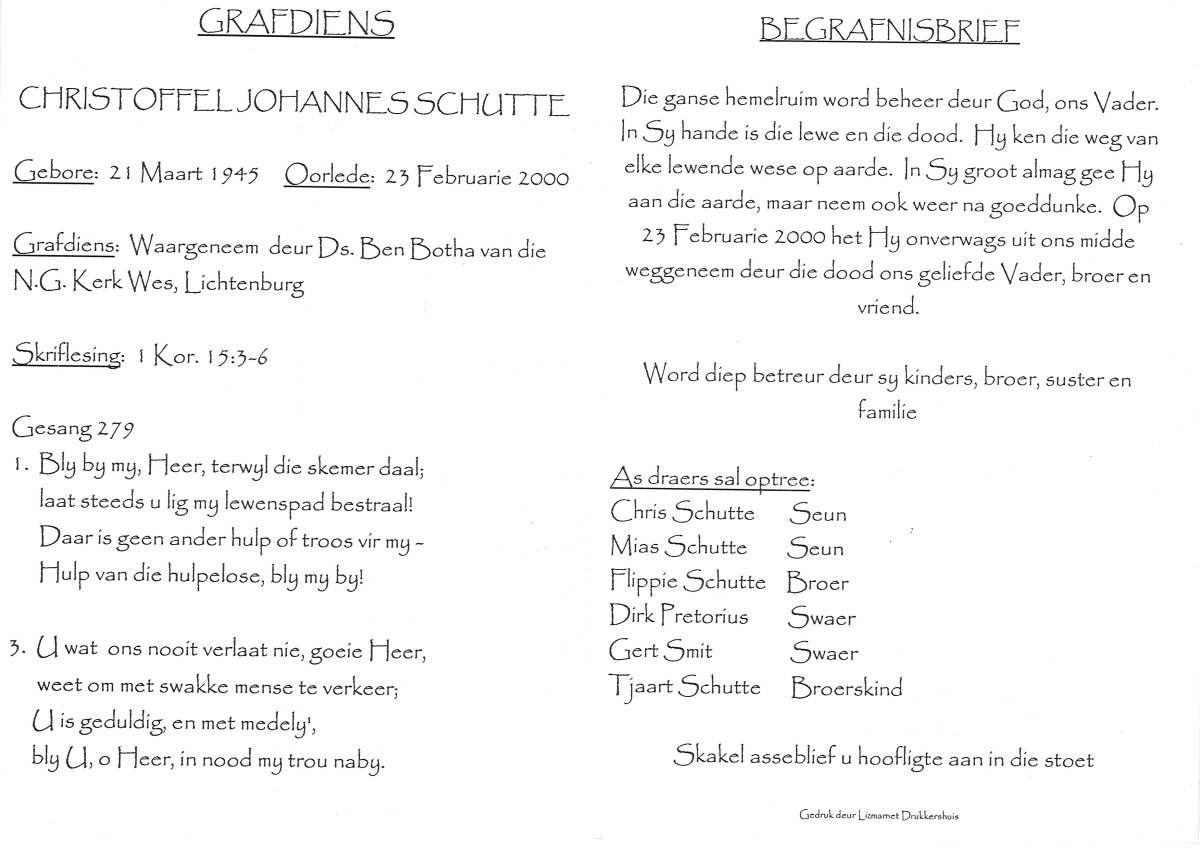 GRAFDIENS
CHRISTOFFEL JOHANNES SCHUTTE
Gebore: 21 Maart 1945 Oorlede: 23 Februarie 2000
Grafdiens: Waargeneem deur Ds. Ben Botha van die
N.G. Kerk Wes, Lichtenburg
Skriflesing: 1 Kor. 15:3-6
Gesang 279
1. Bly by my, Heer, terwyl die skemer daal;
laat steeds u lig my lewenspad bestraal!
Daar is geen ander hulp of troos vir my -
Hulp van die hulpelose, bly my by!
3. U wat ons nooit verlaat nie, goeie Heer,
weet om met swakke mense te verkeer;
U is geduldig, en met medely',
bly U, o Heer, in nood my trou naby.
BEGRAFNISBRIEF
Die ganse hemelruim word beheer deur God, ons Vader.
In Sy hande is die lewe en die dood. Hy ken die weg van
elke lewende wese op aarde. In Sy groot almag gee Hy
aan die aarde, maar neem ook weer na goeddunke. Op
23 Februarie 2000 het Hy onverwags uit ons midde
weggeneem deur die dood ons geliefde Vader, broer en
vriend.
Word diep betreur deur sy kinders, broer, suster en
familie
As draers sal optree:
Chris Schutte Seun
Mias Schutte Seun
Flippie Schutte Broer
Dirk Pretorius Swaer
Gert Smit Swaer
Tjaart Schutte Broerskind
Skakel asseblief u hoofligte aan in die stoet
Gedruk deur Lizmamet Drukkershuis